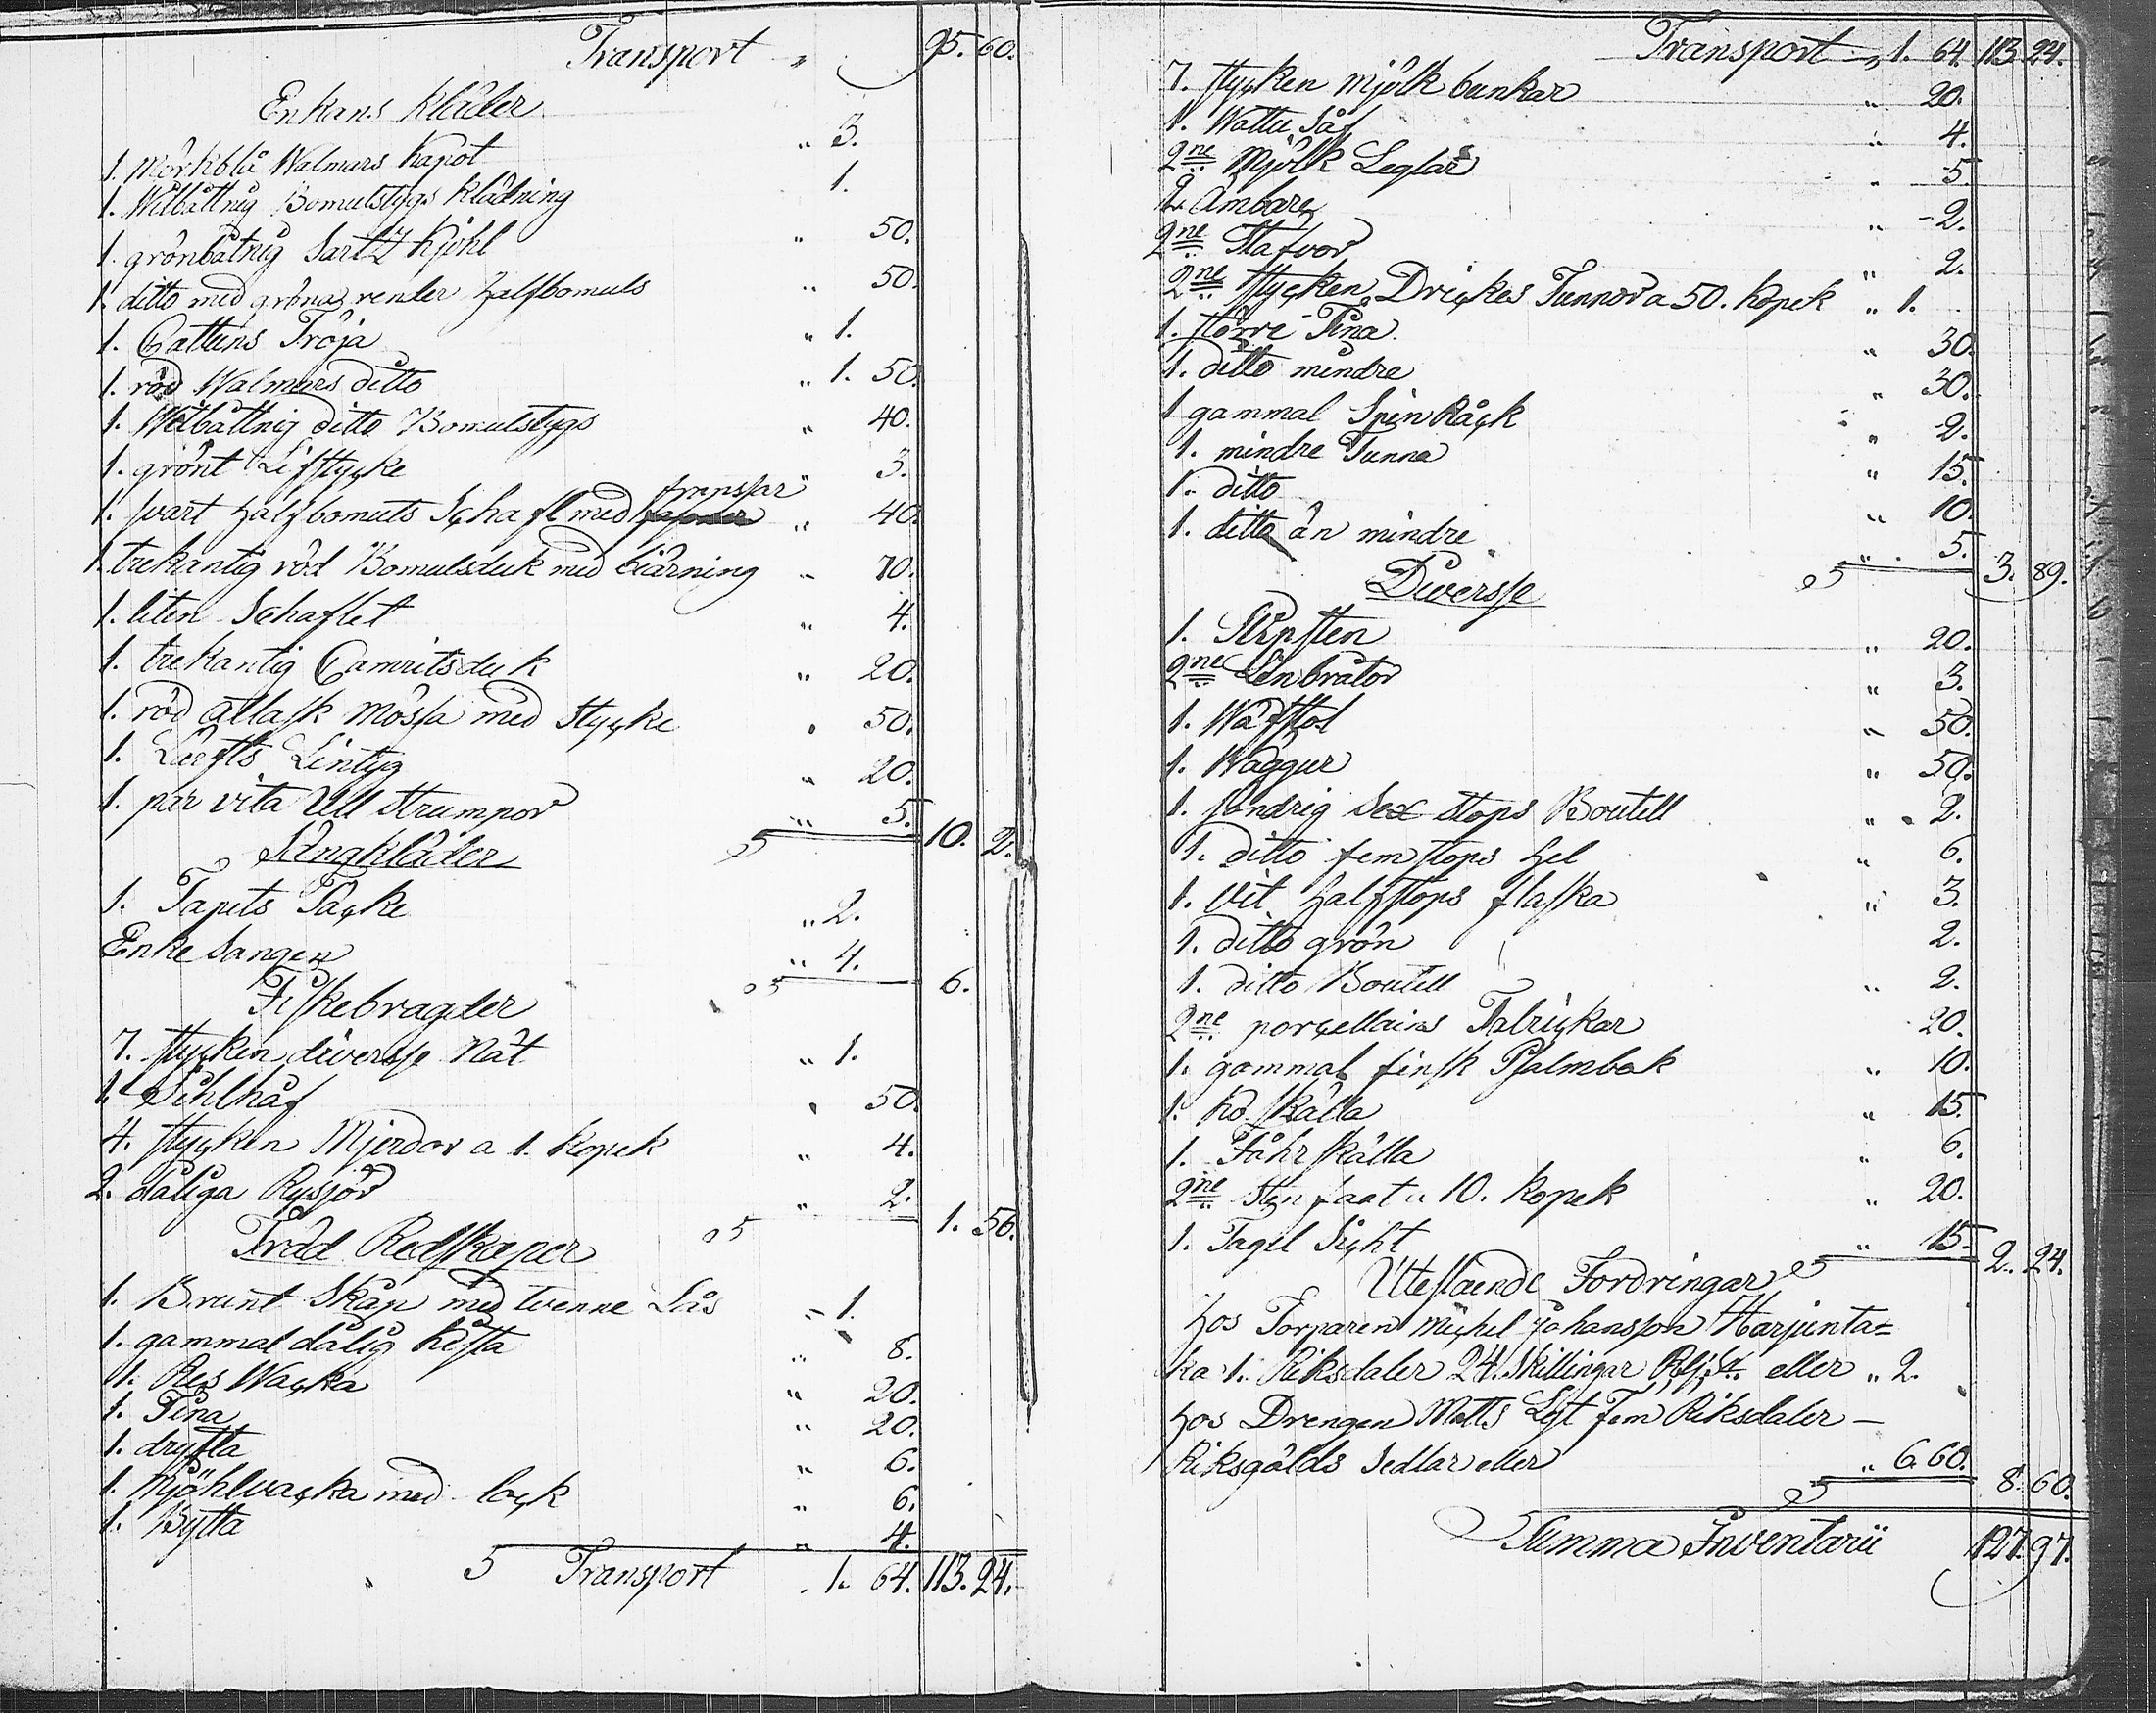 Transport " 95. 60.
Enkans Kläder
1. Mörkblå Walmars Kapot " 3.
1. Witbåttnig Bomulstygs Klädning 1.
1. grönbåtnig Sartz Kjohl " 50.
1. ditto med gröna render halfbomuls " 50.
1. Cattuns Tröja " 1.
1. röd Walmars ditto " 1. 50.
1. Witbåttnig ditto Bomulstygs " 40.
1. grönt Lifstycke " 3.
1. svart halfbomuls Schaflmed fransar " 40.
1. trekantig röd Bomulsduk med Kiärning " 70.
1. liten Schaflet " 4.
1. trekantig Camritsduk " 20.
1. röd atlask Mössa med Stycke " 50.
1. Lärfts Lintyg " 20.
1. par vita Ull strumpor " 5. 10. 2.
Sängkläder
1. Tapets Täcke " 2.
Enkesangen " 4. 6.
Fiskebragder
7. stycken diversse Nät " 1.
1. Sihlhåf " 50.
4. stycken Mjerdor a 1. Kopek " 4.
2. dåliga Rysjor " 2. 1. 56.
Träd Redskaper
1. Brunt Skåp med tvenne Lås " 1.
1. gammal dålig Kista " 8.
1. Res Wacka " 20.
1. Tina " 20.
1. dryfta " 6.
1. Mjöhlvacka med lock " 6.
1. Bytta " 4.
Transport " 1. 64. 113. 24.
Transport " 1. 64. 113. 24.
7. stycken Mjölk bunkar " 20.
1. Wattu Så " 4.
2ne Mjölk Leglar " 5.
2. Ämbare " 2.
2ne Stafvor " 2.
2ne stycken Drickes Tunnor a 50. Kopek " 1.
1. större Tina " 30.
1. ditto mindre " 30.
1 gammal Spin Råck " 2.
1. mindre Tunna " 15.
1. ditto " 10.
1. ditto än mindre " 5. 3. 89.
Diversse
1. Slipsten " 20.
2ne Linbråtor " 3.
1. Wäfstol " 50.
1. Waggur " 50.
1. söndrig Sex stops Boutell " 2.
1. ditto fem stops hel " 6.
1. vit halfstops flaska " 3.
1. ditto grön 2.
1. ditto Boutell " 2.
2ne porcellains Talrickar 20.
1. gammal finsk Psalmbok " 10.
1. Ko skälla " 15.
1. Fåhr skälla " 6.
2ne Sten faat a 10. Kopek " 20.
1. Tagel Sicht " 15. 2. 24.
Utestående Fordringar
hos Torparen Michel Johansson Harjunta=
ka 1. Riksdaler 24. Skillingar eller " 2.
hos Drengen Matts Fem Riksdaler –
Riksgälds Sedlar eller " 6. 60. 8. 60.
Summa Inventarii 127. 97.